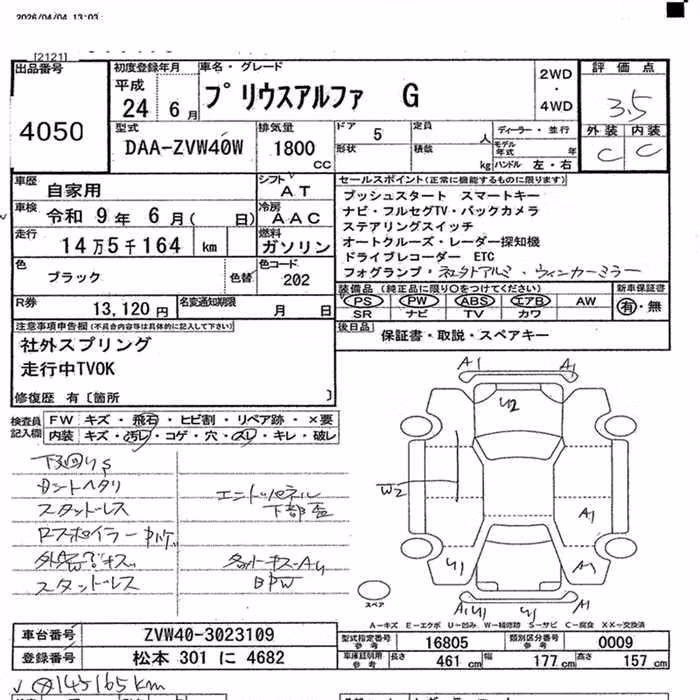 2026/04/04 13:03
[2121]
出品番号
4050
初度登録年月
平成
24 6月
車名・グレード
プリウスアルファ G
2WD
・
4WD
評価点
3.5
外装 内装
C C
型式
DAA-ZVW40W
排気量
1800
CC
ドア 5
定員 人
形状
積載 kg
ディーラー・並行
モデル年式 年
ハンドル 左・右
車歴
自家用
シフト
AT
車検
令和 9年 6月( 日)
冷房
AAC
走行
14万5千164 km
燃料
ガソリン
色
ブラック
色替
色コード
202
R券
13,120円
名変通知期限
月 日
セールスポイント(正常に機能するものに限ります)
プッシュスタート スマートキー
ナビ・フルセグTV・バックカメラ
ステアリングスイッチ
オートクルーズ・レーダー探知機
ドライブレコーダー ETC
フォグランプ・社外アルミ・ウィンカーミラー
装備品(純正品に限り○をつけてください)
PS PW ABS エアB AW
SR ナビ TV カワ
新車保証書
有・無
後日品
保証書・取説・スペアキー
注意事項申告欄(不具合内容等は具体的に記入して下さい)
社外スプリング
走行中TVOK
修復歴 有〔箇所 〕
検査員
記入欄
FW キズ・飛石・ヒビ割・リペア跡・×要
内装 キズ・汚レ・コゲ・穴・スレ・キレ・破レ
下廻りS
シートヘタリ
スタッドレス
スタッドレス
エンドパネル
下部歪
A1 A1
U2
W2
A1
U1 A1
A1U1 U1 A1
スペア
A-キズ E-エクボ U-凹み W-補修跡 S-サビ C-腐食 XX-交換済
車台番号
ZVW40-3023109
登録番号
松本 301 に 4682
型式指定番号
参考
16805
類別区分番号
参考
0009
車庫証明用
参考
長さ 461 cm 幅 177 cm 高さ 157 cm
145165km